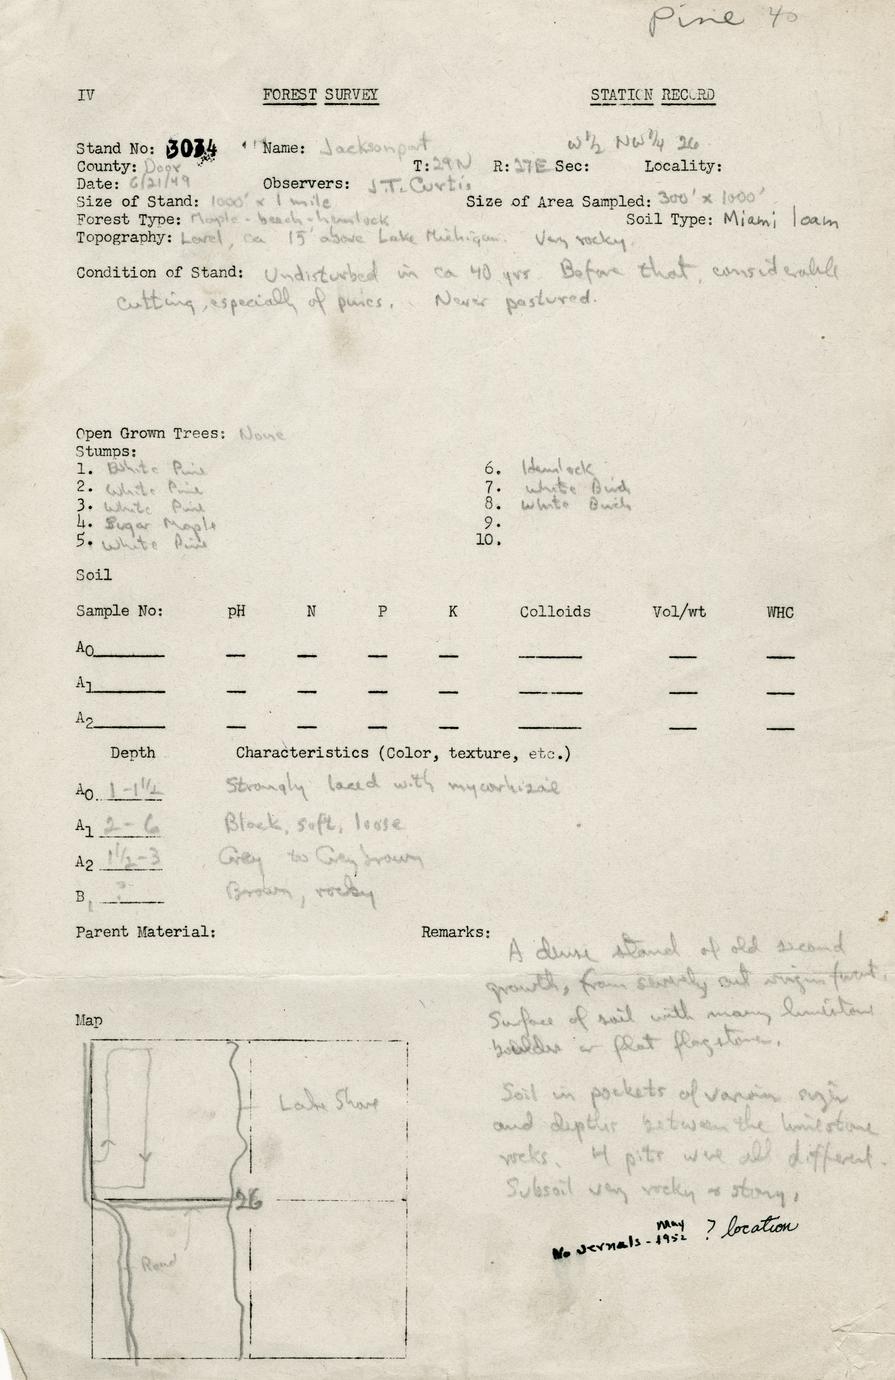 Pine 40
IV FOREST SURVEY STATION RECORD
Stand No: 3034 Name: Jacksonport W 1/2 NW 1/4 26
County: Door T: 29N R: 27E Sec: Locality:
Date: 6/21/49 Observers: J.T. Curtis
Size of Stand: 1000' x 1 mile Size of Area Sampled: 300' x 1000'
Forest Type: Maple-beech-hemlock Soil Type: Miami loam
Topography: Level, ca 15' above Lake Michigan. Very rocky.
Condition of Stand: Undisturbed in ca 40 yrs. Before that, considerable
cutting, especially of pines. Never pastured.
Open Grown Trees: None
Stumps:
1. White Pine 6. Hemlock
2. White Pine 7. White Birch
3. White Pine 8. White Birch
4. Sugar Maple 9.
5. White Pine 10.
Soil
Sample No: pH N P K Colloids Vol/wt WHC
A0
A1
A2
Depth Characteristics (Color, texture, etc.)
A0 1-1 1/2 Strongly laced with mycorhizae
A1 2-6 Black, soft, loose
A2 1 1/2-3 Grey to Grey brown
B1 ? Brown, rocky
Parent Material: Remarks:
A dense stand of old second
growth, from severely cut virgin forest.
Surface of soil with many limestone
boulders or flat flagstone.
Map
Soil in pockets of various sizes
and depths between the limestone
rocks. 4 pits were all different.
Subsoil very rocky & stony.
Lake Shore
26
Road
No vernals - May 1952 ? location